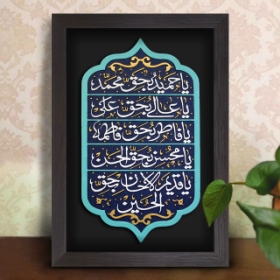 يا حميد بحق محمد
يا عالي بحق علي
يا فاطر بحق فاطمة
يا محسن بحق الحسن
يا قديم الإحسان بحق
الحسين